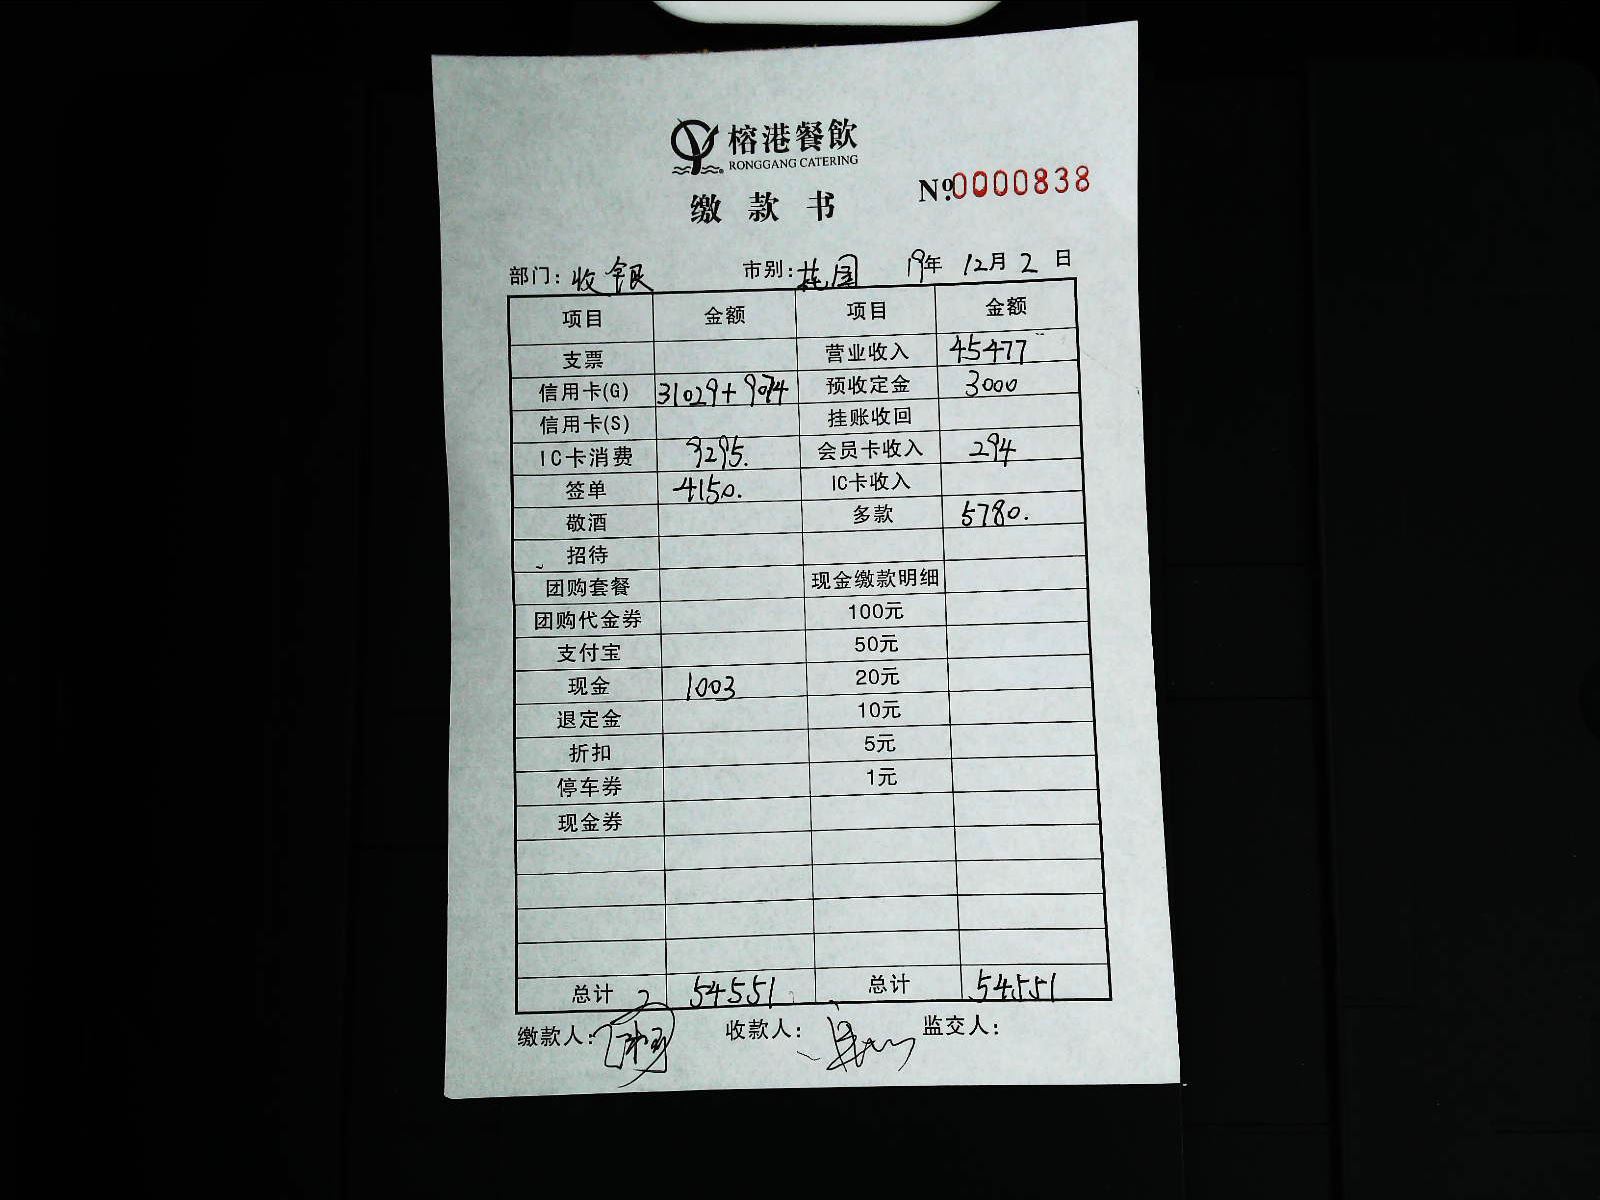 榕港餐飲
RONGGANG CATERING
缴款书
№0000838
部门：收银 市别：桂园 19年 12月 2 日
项目 金额 项目 金额
支票 营业收入 45477
信用卡(G) 31029+9074 预收定金 3000
信用卡(S) 挂账收回
IC卡消费 9295. 会员卡收入 294
签单 4150. IC卡收入
敬酒 多款 5780.
招待
团购套餐 现金缴款明细
团购代金券 100元
支付宝 50元
现金 1003 20元
退定金 10元
折扣 5元
停车券 1元
现金券
总计 54551 总计 54551
缴款人： 收款人： 监交人：